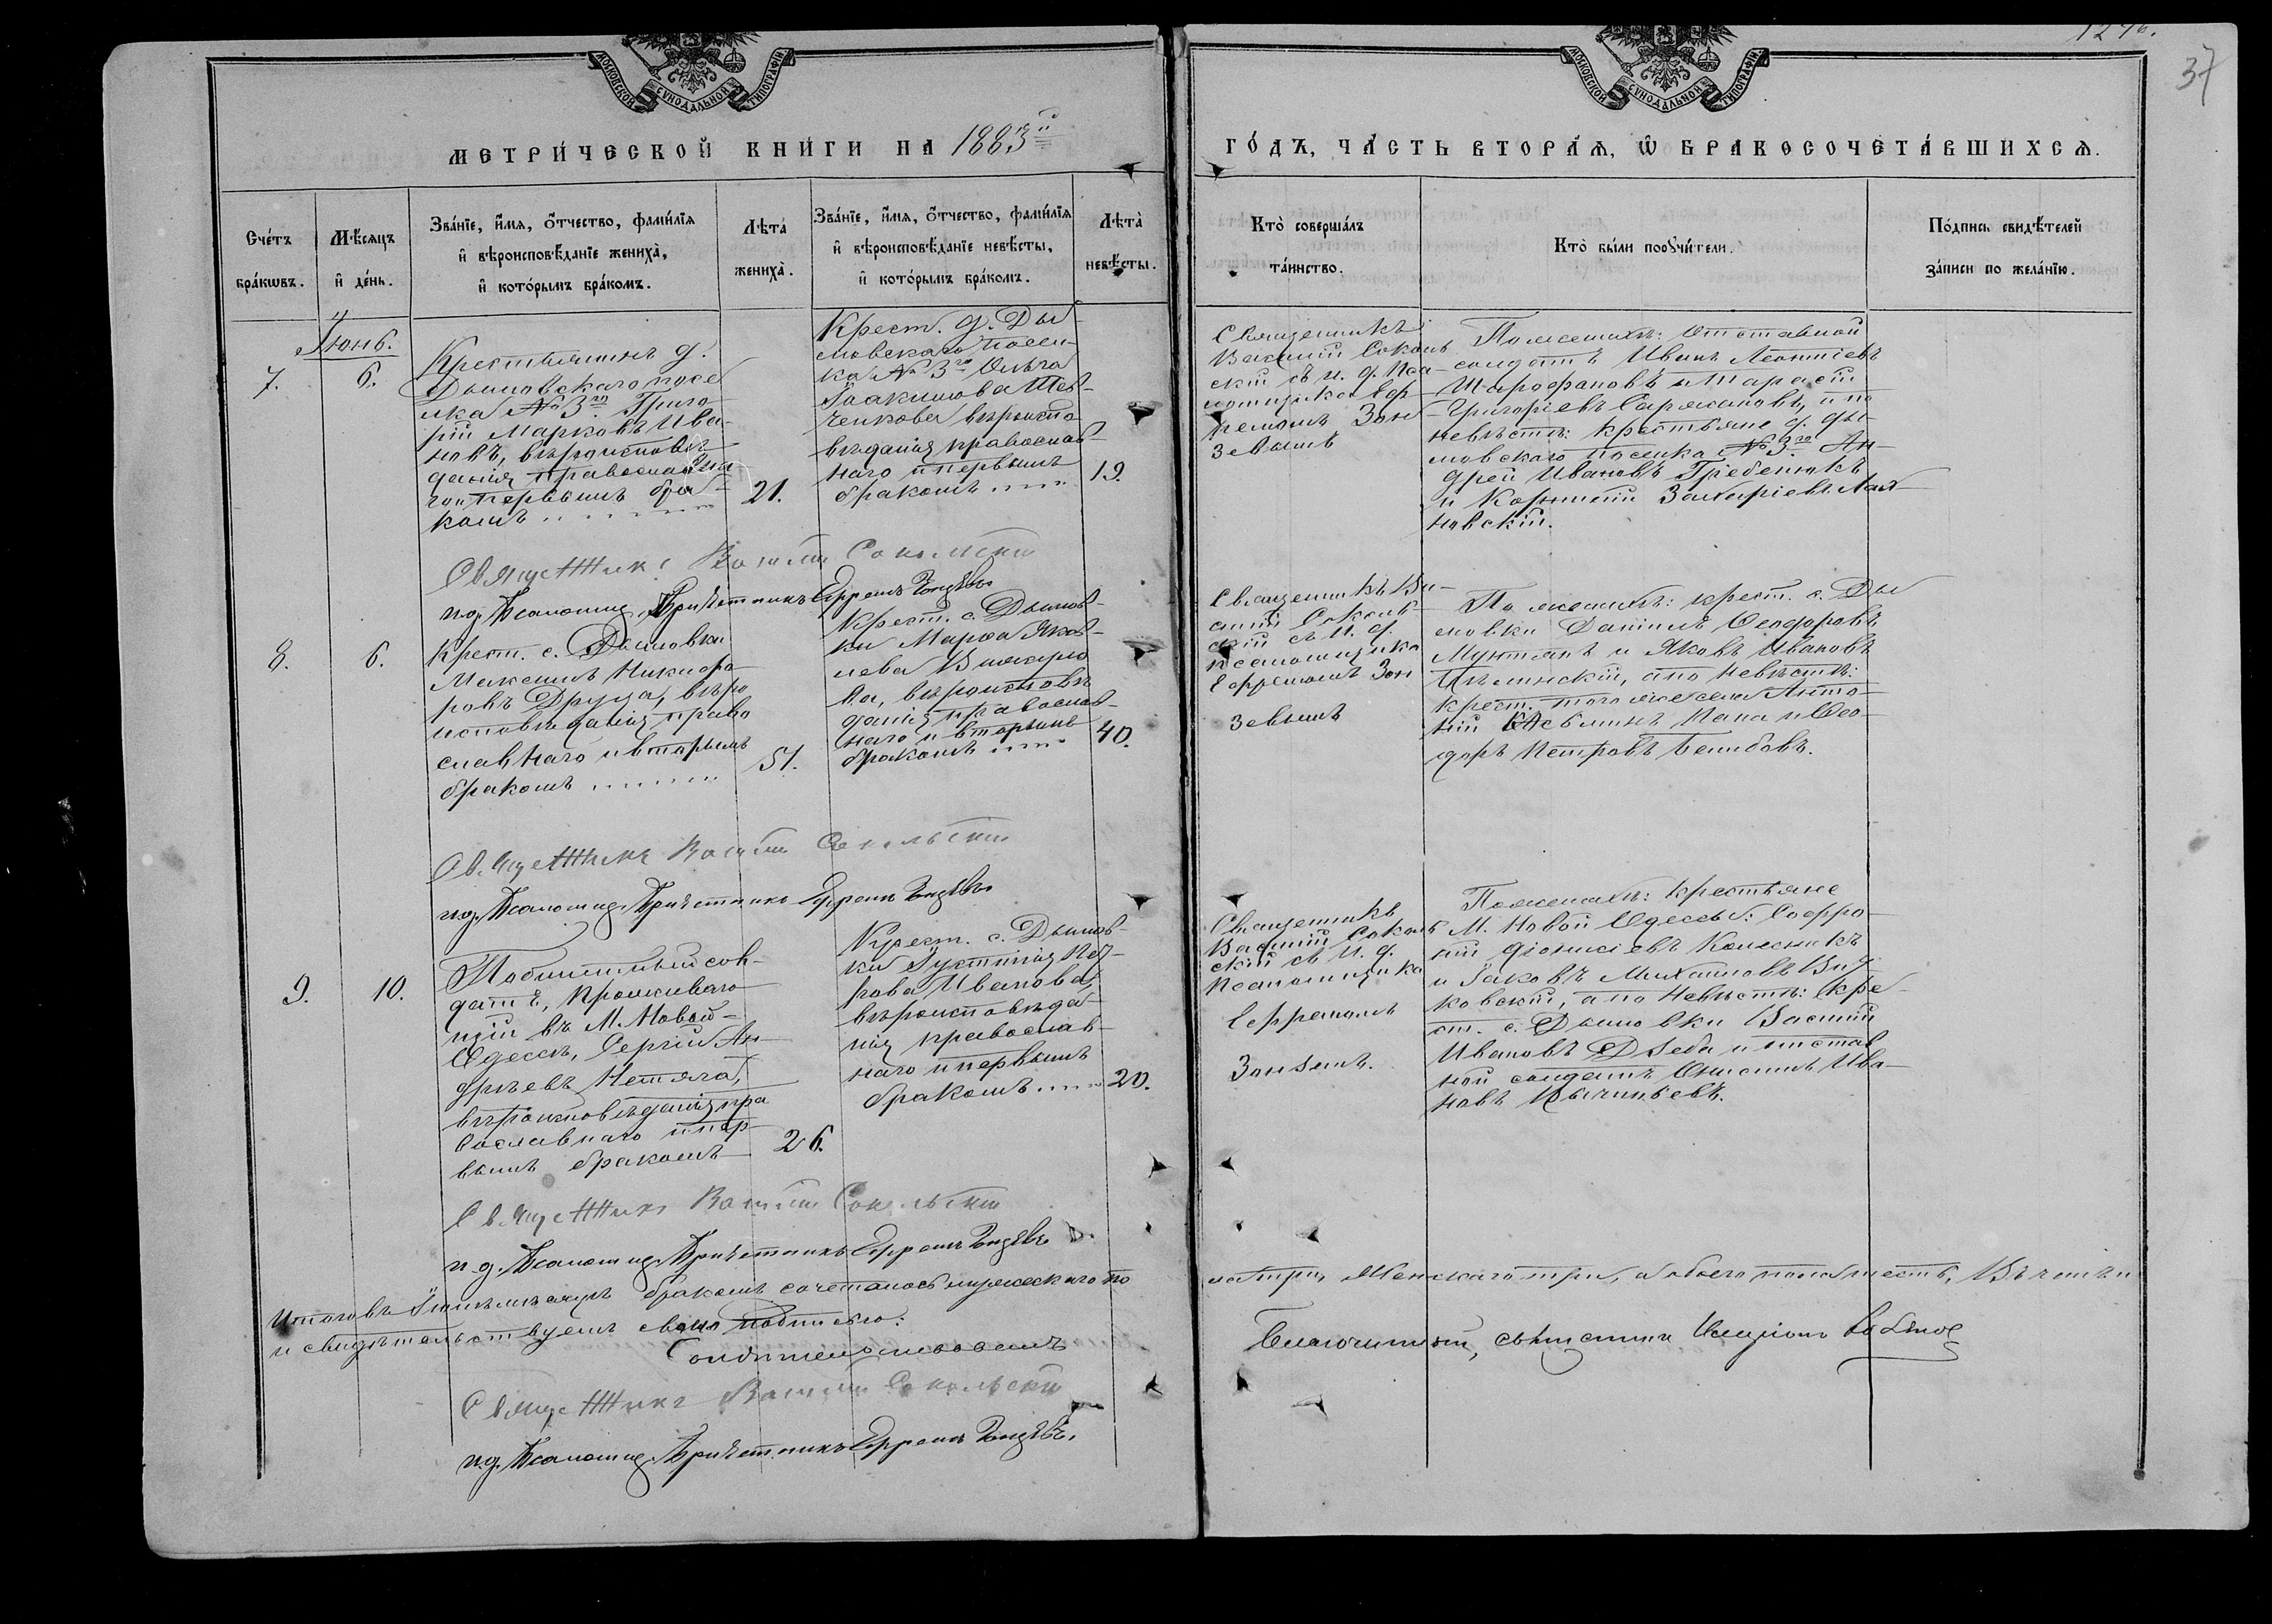 1246.
37
МОСКОВСКОЙ СѴНОДАЛЬНОЙ ТИПОГРАФІИ
МОСКОВСКОЙ СѴНОДАЛЬНОЙ ТИПОГРАФІИ
МЕТРИ́ЧЕСКОЙ КНИ́ГИ НА 1883й
ГО́ДЪ, ЧА́СТЬ ВТОРА́Я, Ѡ БРАКОСОЧЕТА́ВШИХСЯ.
Сче́тъ
бра́кѡвъ.
Мѣ́сяцъ
и҆ де́нь.
Зва́нїе, и҆́мя, ѻ҆́тчество, фами́лїя
и҆ вѣроисповѣ́данїе жениха̀,
и҆ кото́рымъ бра́комъ.
Лѣта̀
жениха̀.
Зва́нїе, и҆́мя, ѻ҆́тчество, фами́лїя
и҆ вѣроисповѣ́данїе невѣ́сты,
и҆ кото́рымъ бра́комъ.
Лѣта̀
невѣ́сты.
Кто̀ соверша́лъ
та́инство.
Кто̀ бы́ли порꙋчи́тели.
По́дпись свидѣ́телей
за́писи по жела́нїю.
Іюнь.
7.
6.
Крестьянинъ д.
Дымовскаго посе
лка № 3го Григо-
рій Марковъ Ива-
новъ, вѣроисповѣ
данія православна
го и первымъ бра-
комъ
21.
Крест. д. Ды-
мовскаго посел-
ка № 3го Ольга
Іоакимова Шев-
ченкова вѣроиспо-
вѣданія православ-
наго и первымъ
бракомъ
19.
Священникъ
Василій Соколь
скій съ и. д. Пса-
ломщика Еф-
ремомъ Зон-
зевымъ
По женихѣ: Отставной
солдатъ Иванъ Леонтіевъ
и Тарасій
Григорьевъ и по
невѣстѣ: крестьяне д. Ды-
мовскаго поселка № 3го Ан-
дрей Ивановъ Гребенюкъ
и Корнилій Захаріевъ
новскій.
Священникъ Василій Сокольскій
и.д. Псаломщ. Причетникъ Ефремъ Зонзевъ
8.
6.
Крест. с. Дымовки
Максимъ Никифо-
ровъ Друца, вѣро
исповѣданія право
славнаго и вторымъ
бракомъ
51.
Крест. с. Дымов-
ки Марѳа Яков-
лева
ва, вѣроисповѣ
данія православ-
наго и вторымъ
бракомъ
40.
Священникъ Ва-
силій Соколь-
скій съ и. д.
псаломщика
Ефремомъ Зон
зевымъ
По женихѣ: крест. с. Ды
мовки Даніилъ Ѳеодоровъ
Мунтянъ и Яковъ Ивановъ
а по невѣстѣ:
крест. того же села Анто-
ній Папа и Ѳео-
доръ Петровъ
Священникъ Василій Сокольскій
и.д. Псаломщ. Причетникъ Ефремъ Зонзевъ
9.
10.
сол-
датъ, проживаю-
щій въ М. Новой-
Одессѣ, Сергій Ан-
дреевъ Нетяга,
вѣроисповѣданія пра
вославнаго и пер-
вымъ бракомъ
26.
Крест. с. Дымов-
ки Іустинія Пет-
рова Иванова,
вѣроисповѣда-
нія православ-
наго и первымъ
бракомъ
20.
Священникъ
Василій Соколь
скій съ и. д.
Псаломщика
Ефремомъ
Зонзевымъ.
По женихѣ: крестьяне
М. Новой Одессы: Софро-
ній Діонисіевъ Колесникъ
и Іаковъ Михаиловъ
ковскій, а по невѣстѣ: кре-
ст. с. Дымовки Василій
Ивановъ Дзеба и отстав
ной солдатъ Онисимъ Ива-
новъ
Священникъ Василій Сокольскій
и.д. Псаломщ. Причетникъ Ефремъ Зонзевъ
Итого въ Іюнѣ мѣсяцѣ бракомъ сочеталось мужескаго по
ла три, Женскаго три, а обоего пола шесть, Въ чемъ и
и свидѣтельствуемъ своею подписью:
Священникъ Василій Сокольскій
и.д. Псаломщ. Причетникъ Ефремъ Зонзевъ.
Благочинный, священникъ